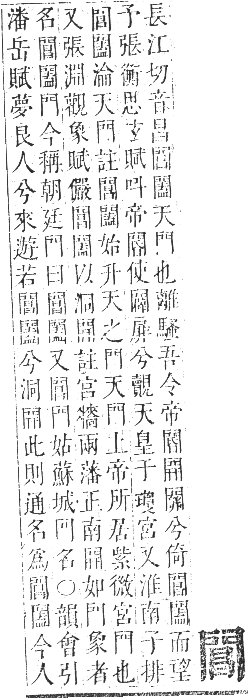 閶
長江切音昌閶闔天門也離騷吾令帝閽開關兮倚閶闔而望
予張衡思玄賦叫帝閽使闢扉兮覿天皇于瓊宮又淮南子排
閶闔淪天門註閶闔始升天之門天門上帝所居紫微宮門也
又張淵觀象賦儼閶闔以洞開註宮牆兩藩正南開如門象者
名閶闔門今稱朝廷門曰閶闔又閶門姑蘇城門名○韻會引
潘岳賦夢良人兮來遊若閶闔兮洞開此則通名為閶闔今人